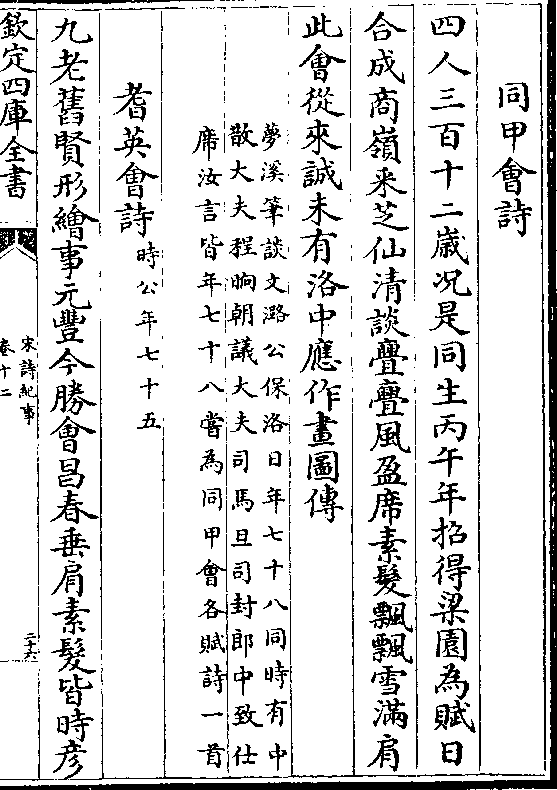 同甲會詩
四人三百十二歲况是同生丙午年招得梁園為賦日
合成商嶺采芝仙清談亹亹風盈席素髮飄飄雪滿肩
此會從來誠未有洛中應作畫圖傳
夢溪筆談文潞公保洛日年七十八同時有中
散大夫程晌朝議大夫司馬旦司封郎中致仕
席汝言皆年七十八嘗為同甲會各賦詩一首
耆英會詩時公年七十五
九老舊賢形繪事元豐今勝會昌春垂肩素髮皆時彦
欽定四庫全書
宋詩紀事
卷十二
二十六